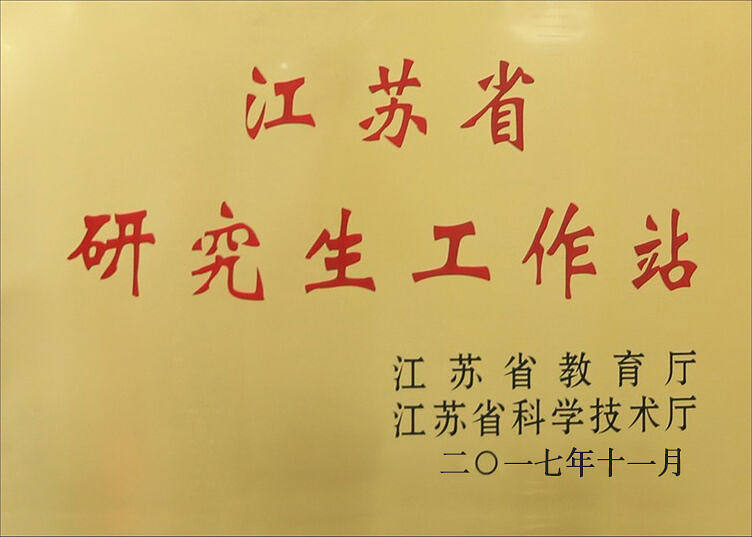 江苏省
研究生工作站
江苏省教育厅
江苏省科学技术厅
二〇一七年十一月